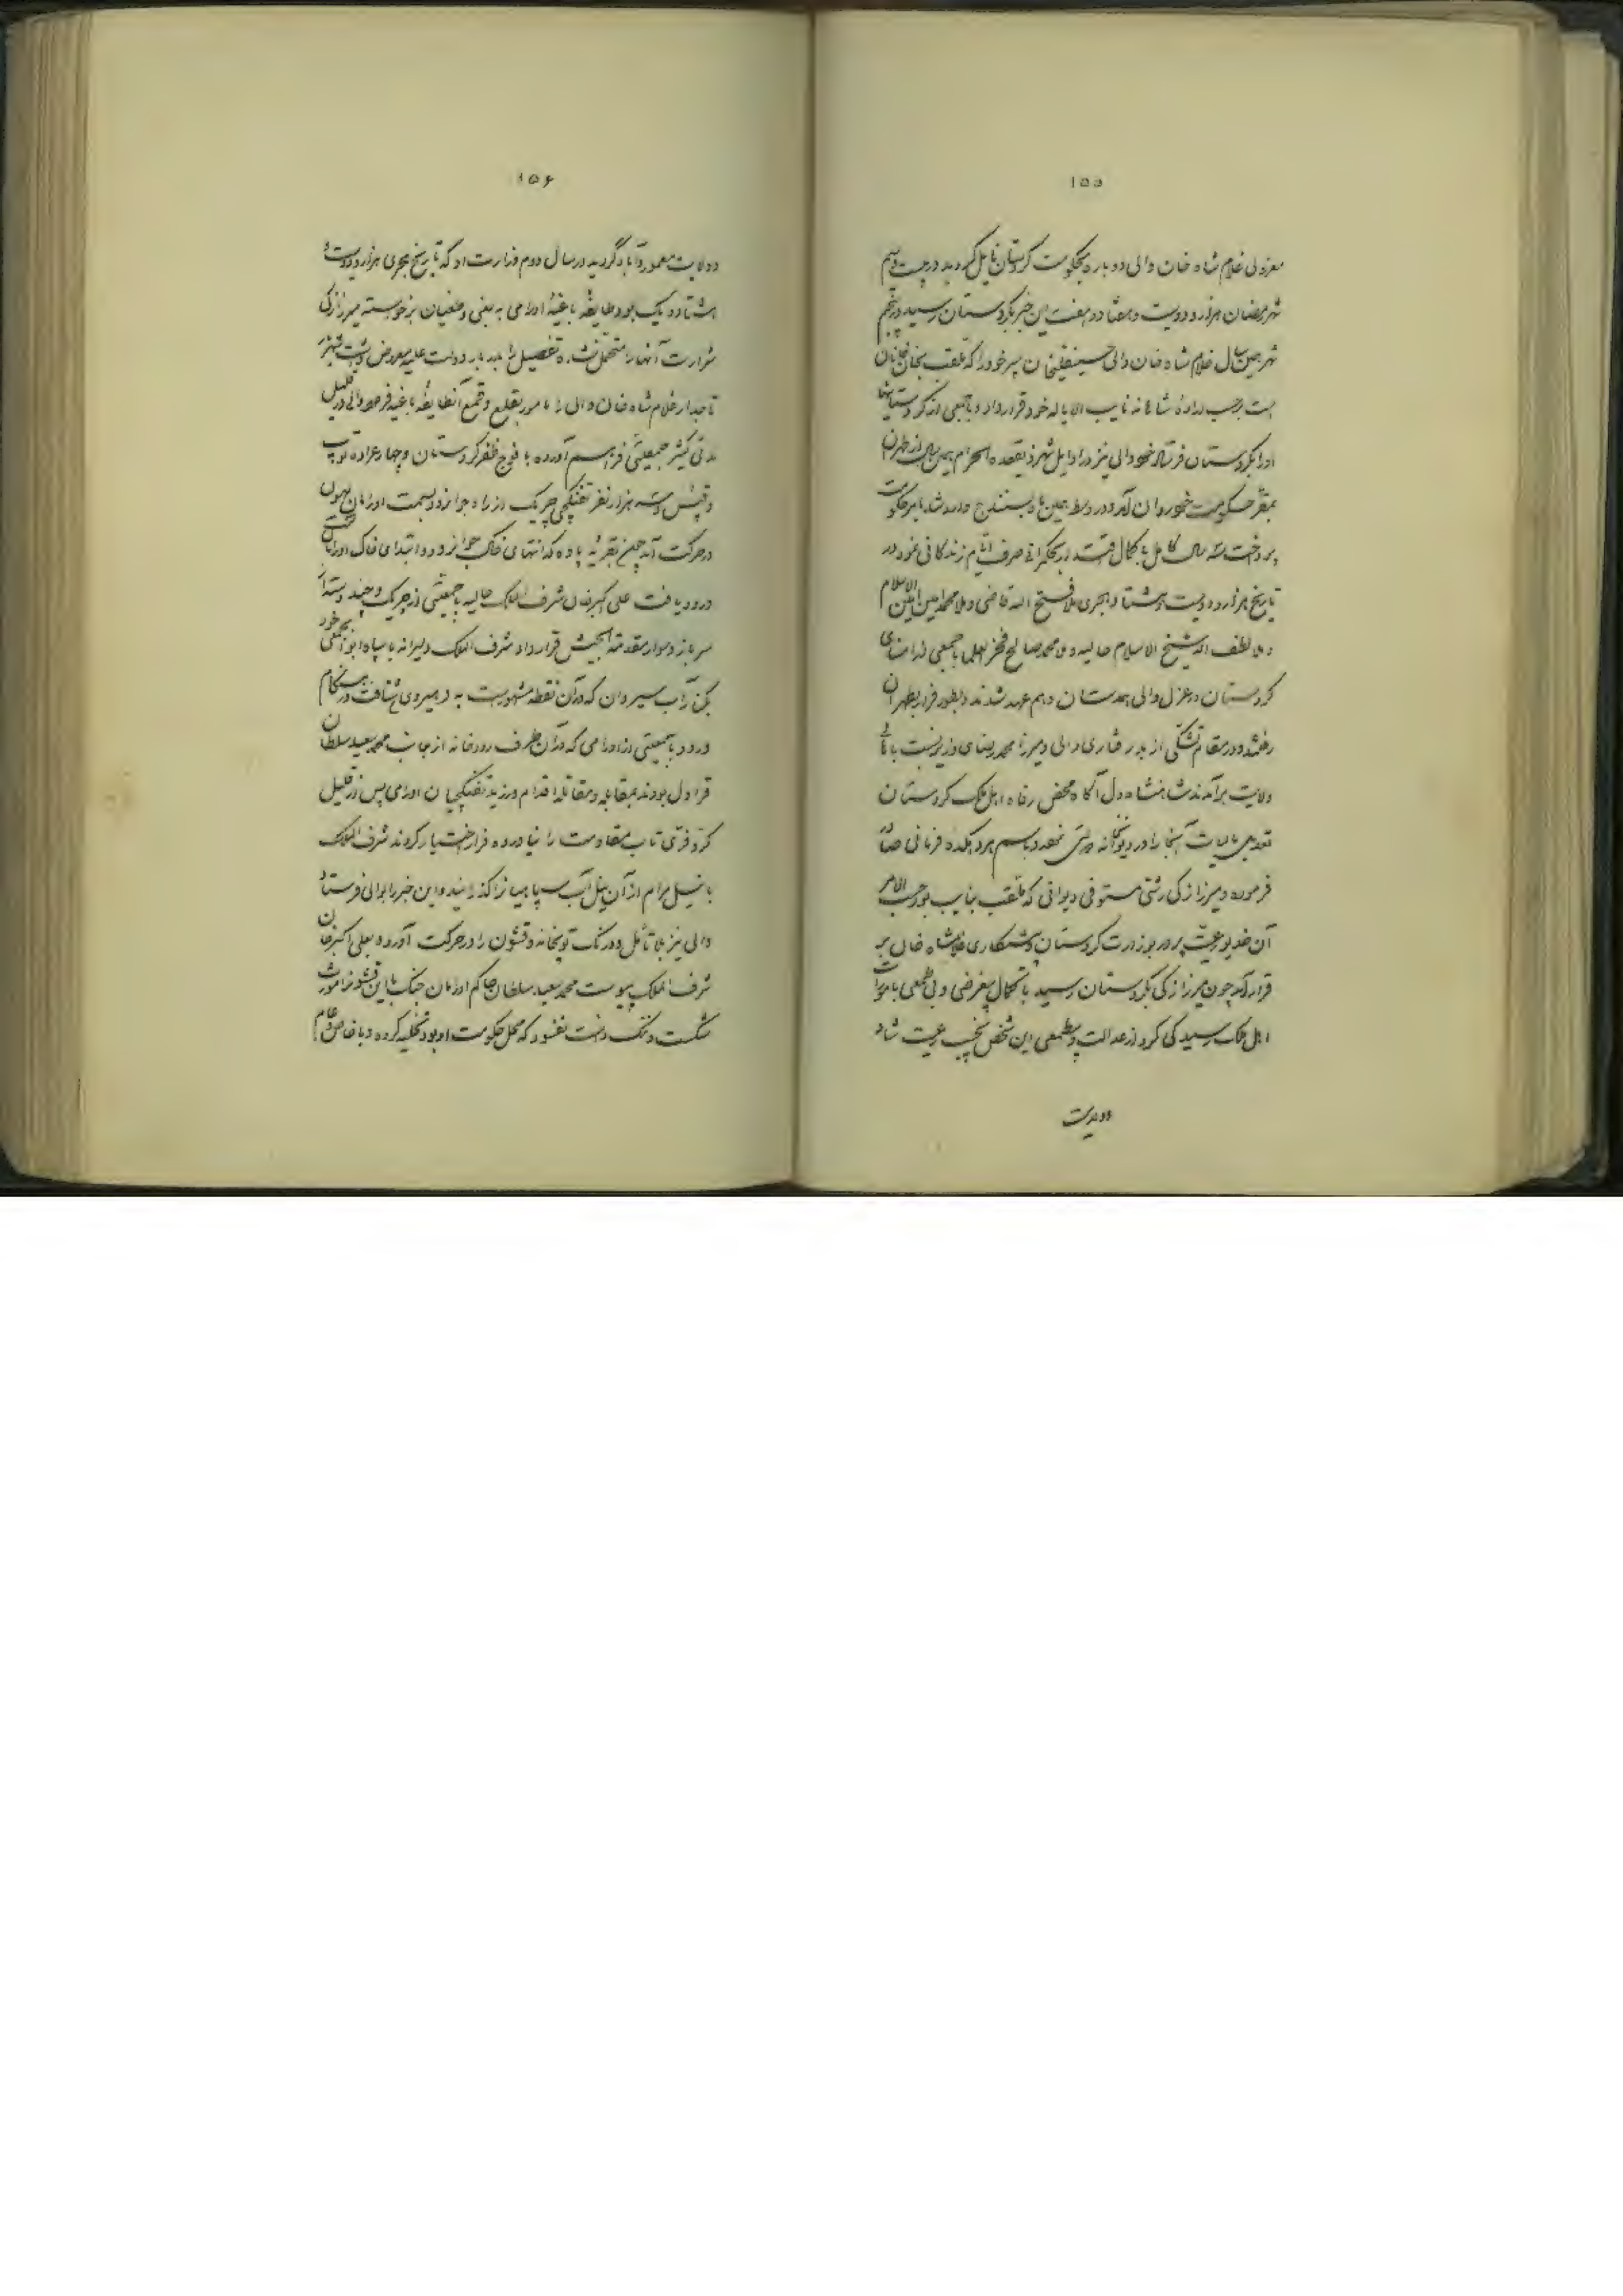 ۱۵۵
معزولی غلام شاه خان والی دوباره بحکومت کردستان نایل گردید در بیست و نهم
شهر رمضان هزار و دویست و هفتاد و هفت این خبر بکردستان رسید در پنجم
شهر همین سال غلام شاه خان والی حسینقلیخان پسر خود را که ملقب بخان خانان
است بر حسب اراده شاهانه نایب الایاله خود قرار داد و با جمعی از کردستانیها
او را بکردستان فرستاد خود والی نیز در اوایل شهر ذیقعده الحرام همین سال از طهران
بمقر حکومت خود روان آمد و در اواسط همین ماه بسنندج وارد شد بامر حکومت
پرداخت سه سال کامل با کمال اقتدار بحکمرانی صرف ایام زندگانی نمود در
تاریخ هزار و دویست و هشتاد هجری ملا فتح الله قاضی و ملا محمد امین امین الاسلام
و ملا لطف الله شیخ الاسلام حالیه و ملا محمد صالح فخر العلما با جمعی از اعضای
کردستان در عزل والی همدستان و هم عهد شدند و بطور فرار بطهران
رفتند و در مقام تشکی از بد رفتاری والی و میرزا محمد رضای وزیر نسبت باهالی
ولایت برآمدند شاهنشاه دل آگاه محض رفاه اهل ملک کردستان
تعدیل مالیات آنجا را در دیوانخانه مبارکه نموده و باسم هر دهکده فرمانی صادر
فرموده و میرزا زکی رشتی مستوفی دیوانی که ملقب بنایب بود حسب الامر
آن خدیو رعیت پرور بوزارت کردستان و پیشکاری غلامشاه خان بر
قرار آمد چون میرزا زکی بکردستان رسید با کمال بیغرضی و بی طمعی بامورات
اهل ملک رسیدگی کرد از عدالت و بیطمعی این شخص نجیب رعیت شاد
و ولایت
۱۵۶
و ولایت معمور و آباد گردید در سال دوم وزارت او که تاریخ هجری هزار و دویست و
هشتاد و یک بود طایفه باغیه اورامی به بغی و طغیان برخواسته میرزا زکی
شرارت آنها را متحمل نشده تفصیل را بدربار دولت علیه معروض داشت شهنشاه
تاجدار غلام شاه خان والی را مامور بقلع و قمع آنطایفه باغیه فرمود والی در قلیل
مدتی کثیر جمعیتی فراهم آورده با فوج ظفر کردستان و چهار عراده توپ
و قپس و سه هزار نفر تفنگچی چریک از راه جوانرود بسمت اورامان لهون
در حرکت آمد چون بقریه پاوه که انتهای خاک جوانرود و ابتدای خاک اورامان است
ورود یافت علی اکبر خان شرف الملک حالیه با جمعیتی از چریک و چند دسته از
سرباز و سوار مقدمة الجیش قرار داد شرف الملک دلیرانه با سپاه ابوابجمعی خود
بکنار آب سیروان که در آن نقطه مشهور است به دهیروی شتافت در هنگام
ورود با جمعیتی از اورامی که در آن طرف رودخانه از جانب محمد سعید سلطان
قراول بودند بمقابله و مقاتله اقدام ورزید تفنگچیان اورامی پس از قلیل
کر و فری تاب مقاومت را نیاورده فرار اختیار کردند شرف الملک
با نیل مرام از آن پل آب سپاهیان را گذرانیده و این خبر را بوالی فرستاد
والی نیز بلا تأمل و درنگ توپخانه و قشون را در حرکت آورد و بعلی اکبر خان
شرف الملک پیوست محمد سعید سلطان حاکم اورامان جنگ با این قشون را مورث
شکست و ننگ دانست نفسود که محل حکومت او بود تخلیه کرده و با خاص و عام